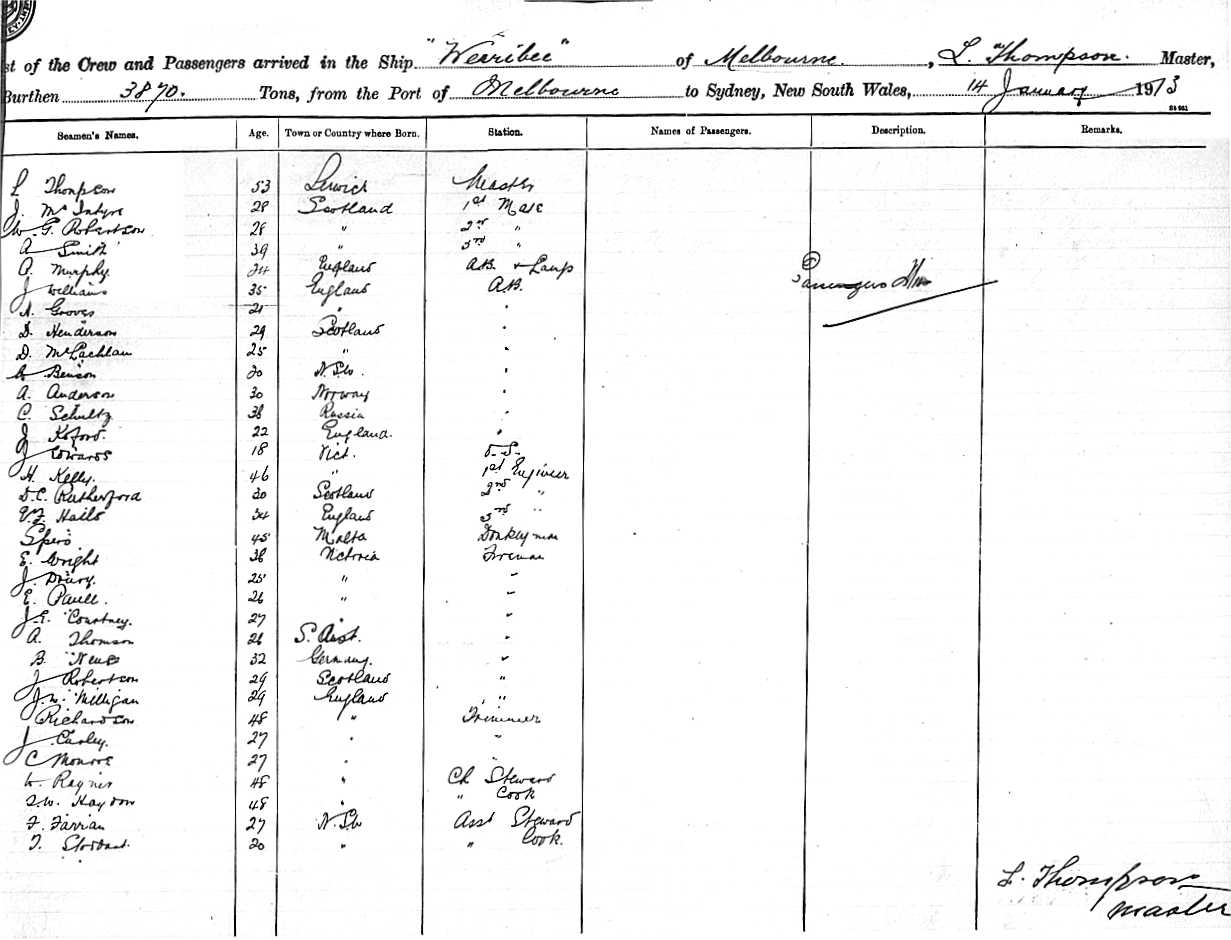 st of the Crew and Passengers arrived in the Ship "Werribee" of Melbourne, L. Thompson. Master,
Burthen 3870. Tons, from the Port of Melbourne to Sydney, New South Wales, 14 January 1913
Seamen's Names. Age. Town or Country where Born. Station. Names of Passengers. Description. Remarks.
L Thompson 53 Lerwick Master
J. McIntyre 28 Scotland 1st Mate
W. G. Robertson 28 " 2nd "
A Smith 39 " 3rd "
P. Murphy. 24 England A.B. & Lamps
J Williams 35 England A.B.
Passengers
A. Groves 21 " "
D. Henderson 29 Scotland "
D. McLachlan 25 " "
Benson 20 N.S.W. "
A. Anderson 30 Norway "
C. Schultz 38 Russia "
J Koford. 22 England. "
J Edwards 18 Vict. O.S.
H. Kelly. 46 " 1st Engineer
D.C. Rutherford 30 Scotland 2nd "
Hails 34 England 3rd "
Spiro 45 Malta Donkeyman
E. Wright 38 Victoria Fireman
J. Drury. 25 " "
E. Paull. 26 " "
J.E. Courtney. 27 " "
A. Thomson 26 S. Aust. "
B. 32 Germany. "
J Robertson 29 Scotland "
J. W. Milligan 29 England "
Richardson 48 " Trimmer
J Carley. 27 " "
C Monroe 27 " "
W. Rayner 48 " Ch Steward
W. Haydon 48 " " Cook
F. Farrian 27 N.S.W Asst Steward
T. Stobart. 20 " " Cook.
L. Thompson
Master